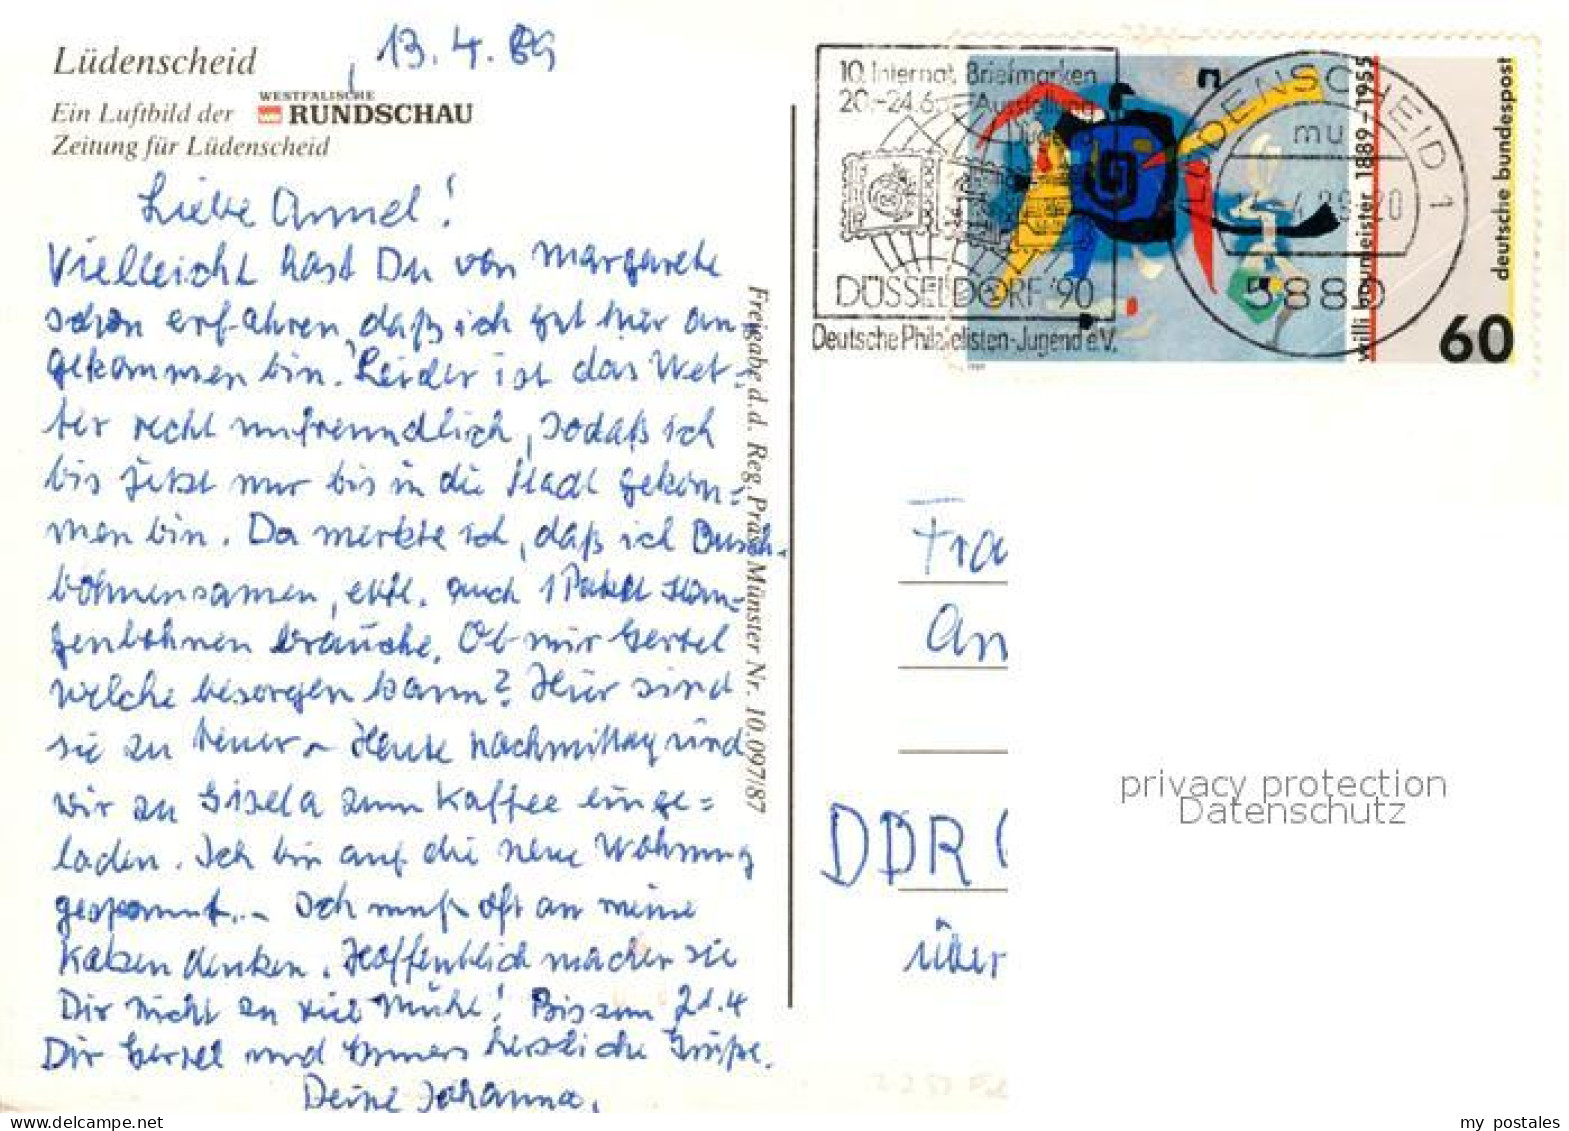 Lüdenscheid
13.4.89
Ein Luftbild der WESTFÄLISCHE RUNDSCHAU
Zeitung für Lüdenscheid
Liebe Annel!
Vielleicht hast Du von Margarete
schon erfahren, daß ich gut hier an-
gekommen bin. Leider ist das Wet-
ter recht unfreundlich, sodaß ich
bis jetzt nur bis in die Stadt gekom=
men bin. Da merkte ich, daß ich Busch-
bohnensamen, evtl. auch 1 Paket Stan-
genbohnen brauche. Ob mir Gertel
welche besorgen kann? Hier sind
sie zu teuer. Heute nachmittag sind
wir zu Gisela zum Kaffee einge=
laden. Ich bin auf die neue Wohnung
gespannt. Ich muß oft an meine
Katzen denken. Hoffentlich machen sie
Dir nicht zu viel Mühe! Bis zum 21.4
Dir Gertel und herzliche Grüße.
Deine Johanna.
Freigabe d. d. Reg. Präs. Münster Nr. 10.097/87
10. Internat. Briefmarken
20.-24.6. Ausstellung
DÜSSELDORF '90
Deutsche Philatelisten-Jugend e.V.
LÜDENSCHEID 1
5880
willi baumeister 1889-1955
deutsche bundespost
60
Fra
An
DDR (
über
privacy protection
Datenschutz
my postales